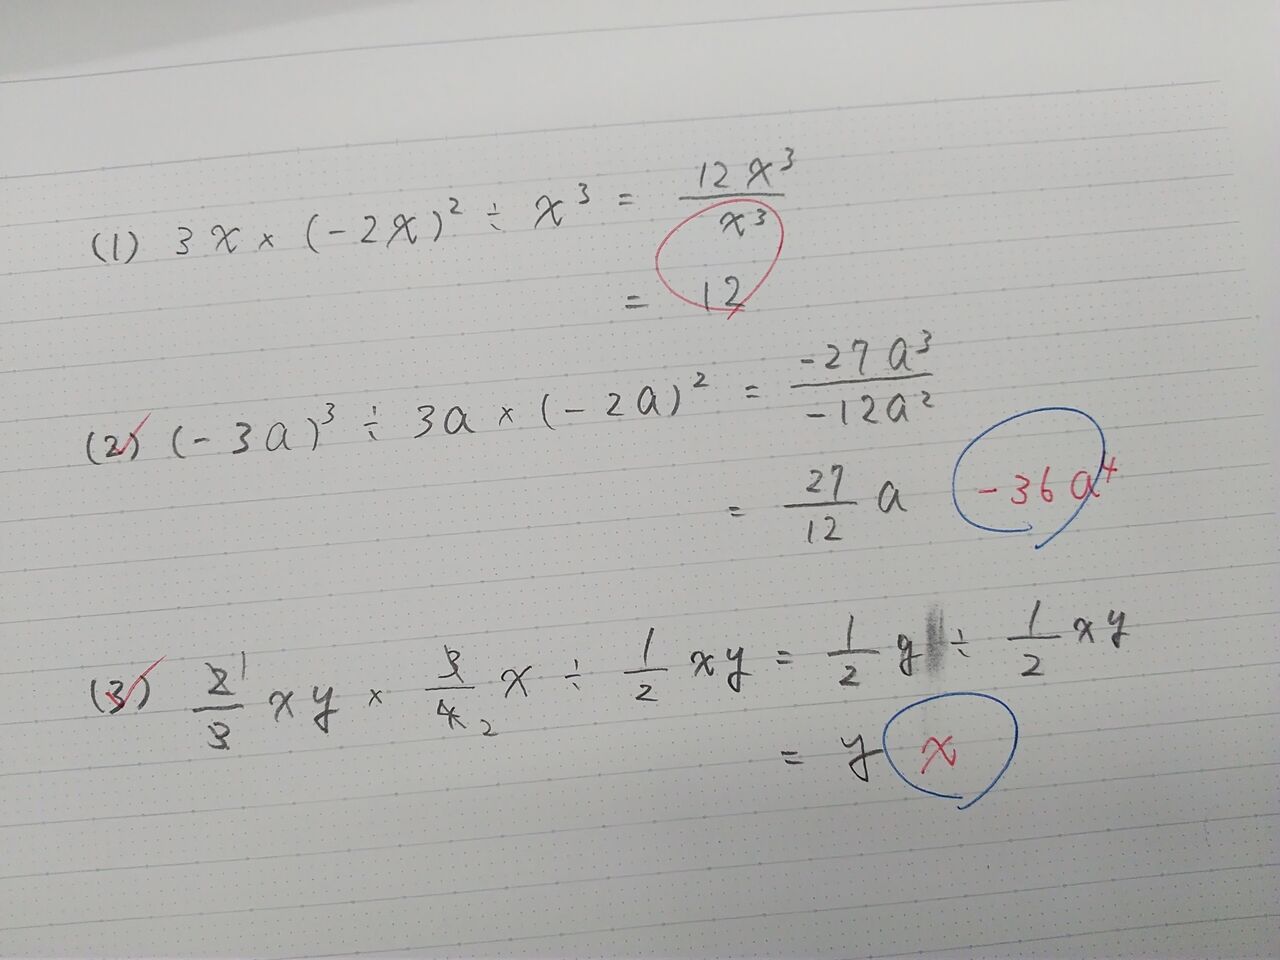 (1) 3x × (-2x)² ÷ x³ = 12x³/x³
= 12
(2) (-3a)³ ÷ 3a × (-2a)² = -27a³/-12a²
= 27/12 a -36a⁴
(3) 2 1/3 xy × 3/4 2 x ÷ 1/2 xy = 1/2 y ÷ 1/2 xy
= y x